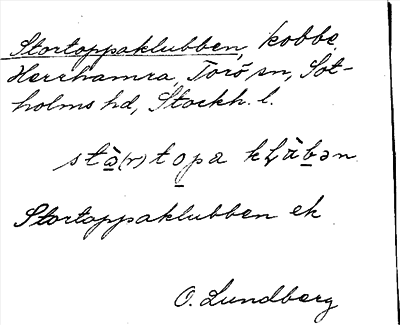 Stortoppaklubben, kobbe
Herrhamra, Torö sn, Sot-
holms hd, Stockh. l.
stå̀(r)topa kl̨ùbən
Stortoppaklubben ek
O. Lundberg